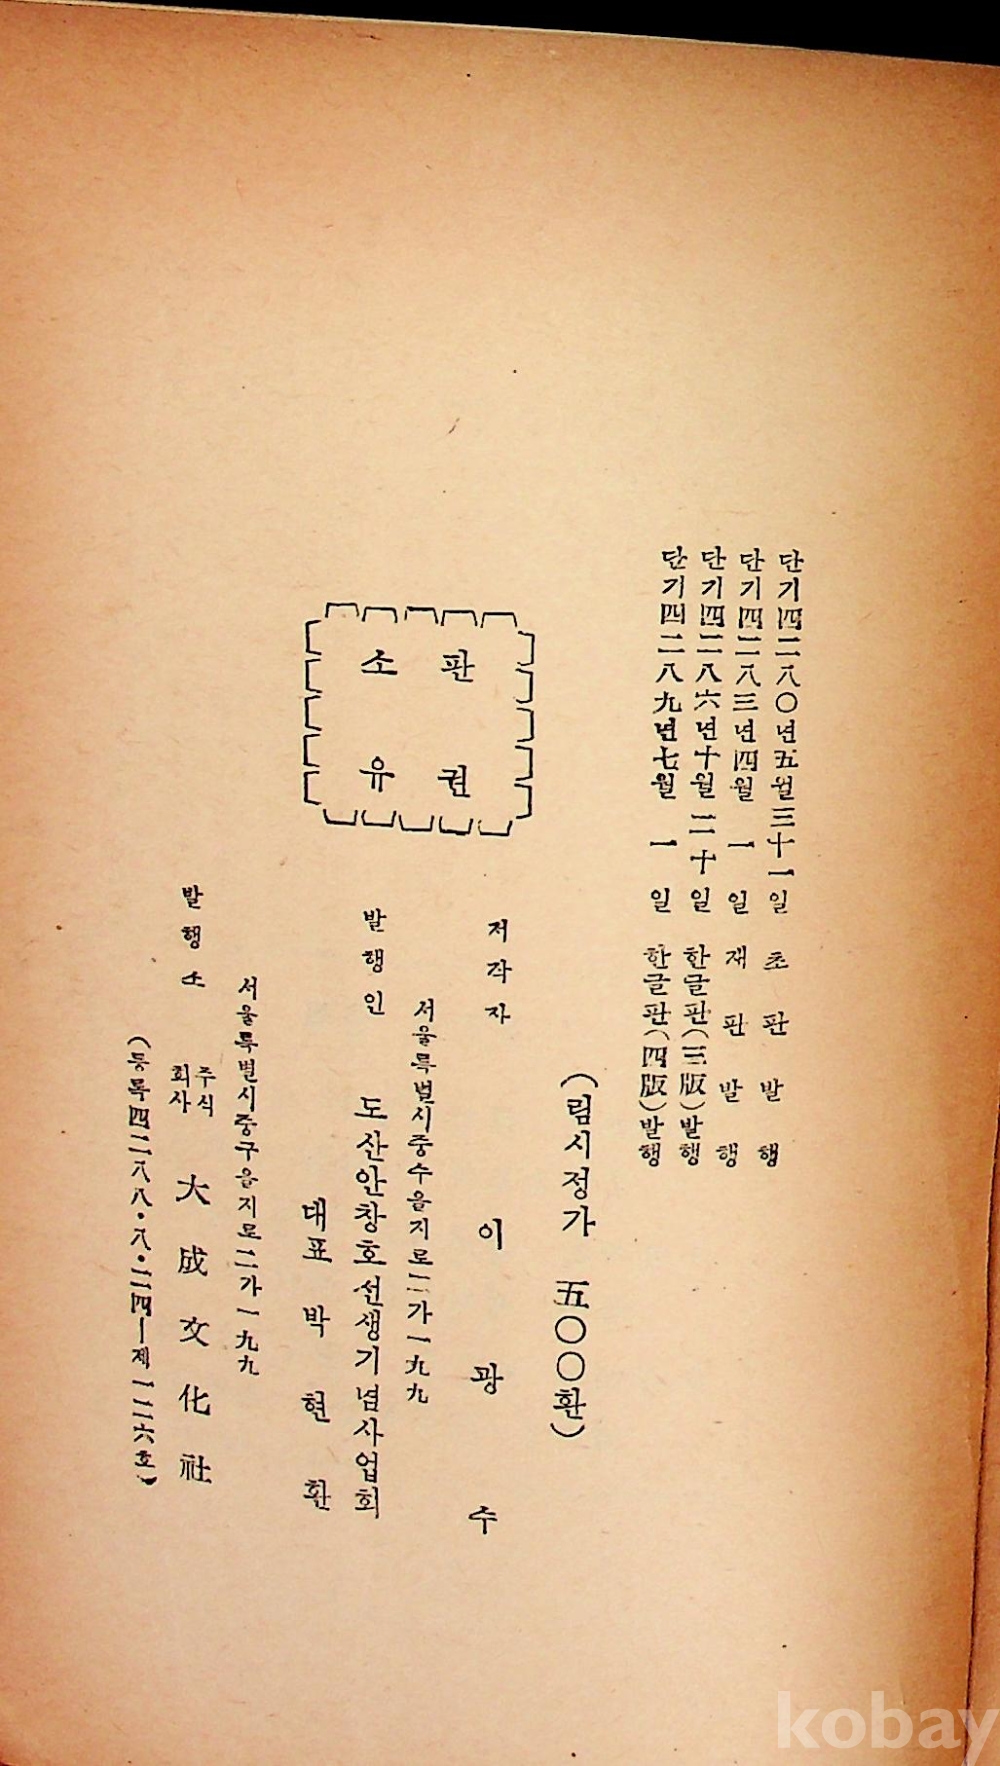 단기四二八〇년五월三十一일 초판발행
단기四二八三년四월 一 일 재판발행
단기四二八六년十월 二十일 한글판(三版)발행
단기四二八九년七월 一 일 한글판(四版)발행
(림시정가 五〇〇환)
판권
소유
저각자 이광수
서울특별시중수을지로二가一九九
발행인 도산안창호선생기념사업회
대표 박현환
서울특별시중구을지로二가一九九
발행소 주식회사 大成文化社
(등록四二八八·八·二四—제一二六호)
kobay